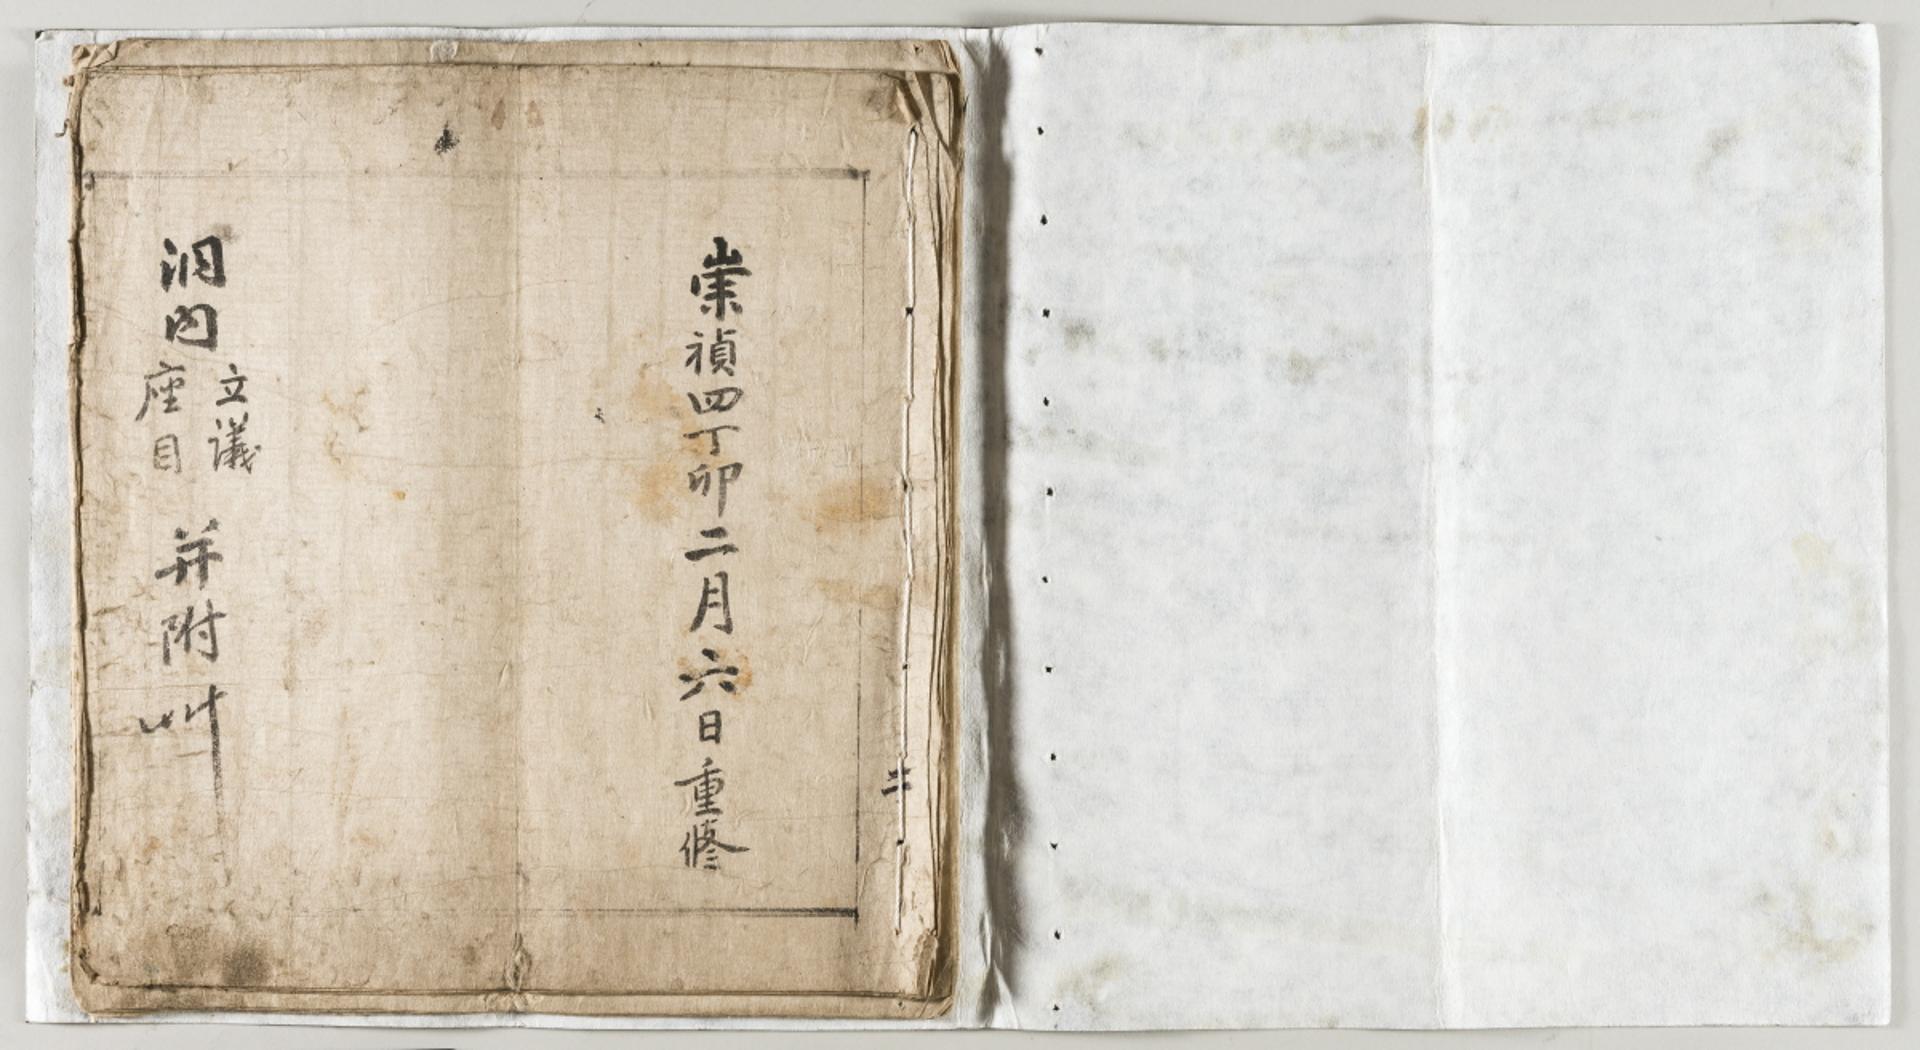 崇禎四丁卯二月六日重修
洞内
立議
座目
并附